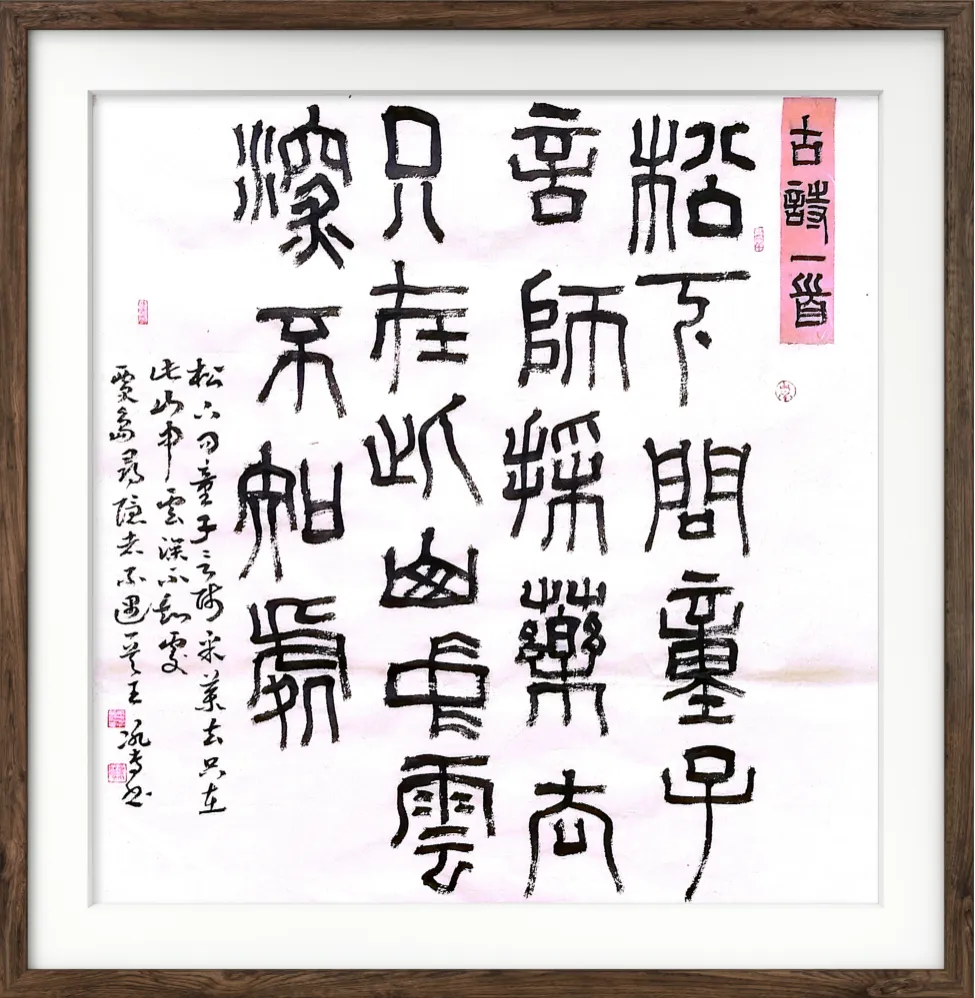 古詩一首
松下問童子
言師採藥去
只在此山中雲
深不知處
松下问童子言师采药去只在
此山中雲深不知處
賈島尋隐者不遇 王 书